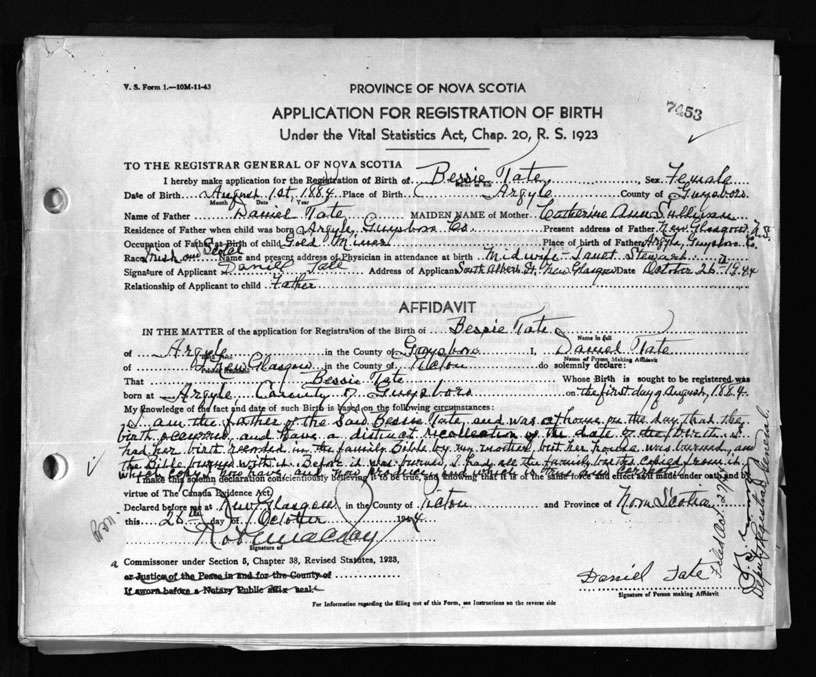 V. S. Form 1.—10M-11-43
PROVINCE OF NOVA SCOTIA
7453
APPLICATION FOR REGISTRATION OF BIRTH
Under the Vital Statistics Act, Chap. 20, R. S. 1923
TO THE REGISTRAR GENERAL OF NOVA SCOTIA
I hereby make application for the Registration of Birth of Bessie Tate, Sex Female
Date of Birth August 1st, 1884 Place of Birth Argyle County of Guysboro
Month Date Year
Name of Father Daniel Tate MAIDEN NAME of Mother Catherine Ann Sullivan
Residence of Father when child was born Argyle, Guysboro Co. Present address of Father New Glasgow, N.S.
Occupation of Father at Birth of child Gold Miner Place of birth of Father Argyle, Guysboro Co.
Race Irish or Scotch Name and present address of Physician in attendance at birth Midwife - Janet Stewart
Signature of Applicant Daniel Tate Address of Applicant South Albert St. New Glasgow Date October 26 1944
Relationship of Applicant to child Father
AFFIDAVIT
IN THE MATTER of the application for Registration of the Birth of Bessie Tate
Name in full
of Argyle in the County of Guysboro I, Daniel Tate
Name of Person Making Affidavit
of New Glasgow in the County of Pictou do solemnly declare:
That Bessie Tate Whose Birth is sought to be registered was
born at Argyle County of Guysboro on the first day of August, 1884.
My knowledge of the fact and date of such Birth is based on the following circumstances:
I am the father of the said Bessie Tate, and was at home on the day that the
birth occurred and have a distinct recollection of the date of the birth. I
had her birth recorded in the family Bible by my mother but her house was burned, and
the Bible burned with it. Before it was burned, I had all the family births copied from it
which copy I now have, and now produce
I make this solemn declaration conscientiously believing it to be true, and knowing that it is of the same force and effect as if made under oath and by
virtue of The Canada Evidence Act.
Declared before me at New Glasgow in the County of Pictou and Province of Nova Scotia
this 26th day of October 1944
Signature of
a Commissoner under Section 5, Chapter 38, Revised Statutes, 1923,
or Justice of the Peace in and for the County of
If sworn before a Notary Public affix seal.
Daniel Tate
Signature of Person making Affidavit
For Information regarding the filling out of this Form, see Instructions on the reverse side
Filed Oct. 27
Deputy Registrar General.